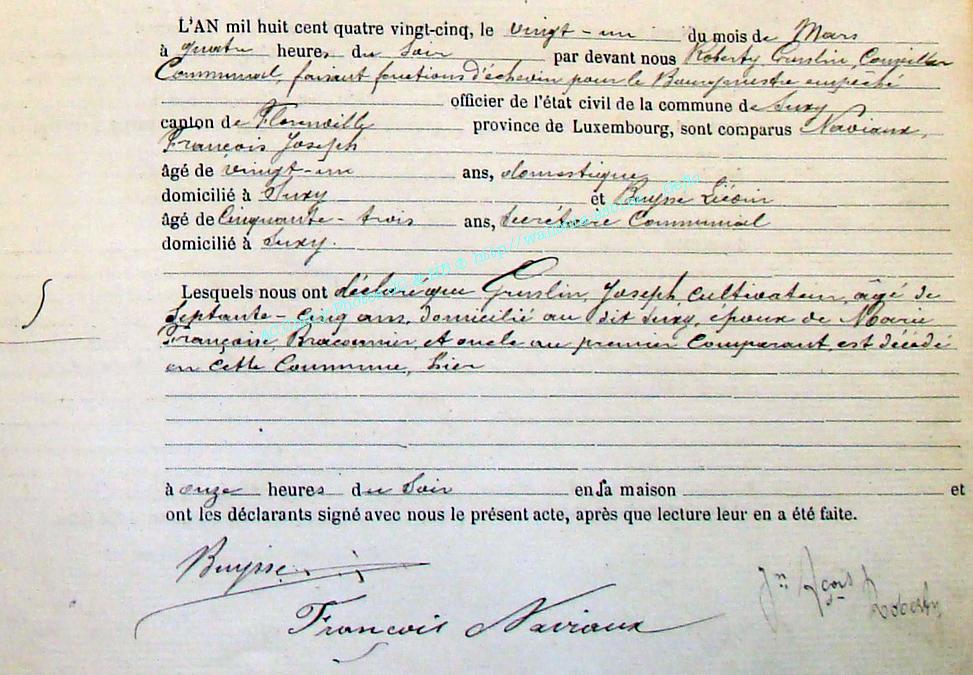 L'AN mil huit cent quatre vingt-cinq, le vingt-un du mois de Mars
à quatre heures du Soir par devant nous Roberty Gruslin, Conseiller
Communal, faisant fonctions d'échevin pour le Bourgmestre empêché
officier de l'état civil de la commune de Suxy
canton de Florenville province de Luxembourg, sont comparus Naviaux,
François Joseph
âgé de vingt-un ans, domestique
domicilié à Suxy et Buysse
âgé de Cinquante-trois ans, Secrétaire Communal
domicilié à Suxy.
Lesquels nous ont déclaré que Gruslin, Joseph, cultivateur, âgé de
Septante-cinq ans, domicilié au dit Suxy, époux de Marie
Françoise, Braconnier, et oncle au premier Comparant, est décédé
en cette Commune, hier
à onze heures du Soir en sa maison et
ont les déclarants signé avec nous le présent acte, après que lecture leur en a été faite.
Buysse
François Naviaux
Roberty